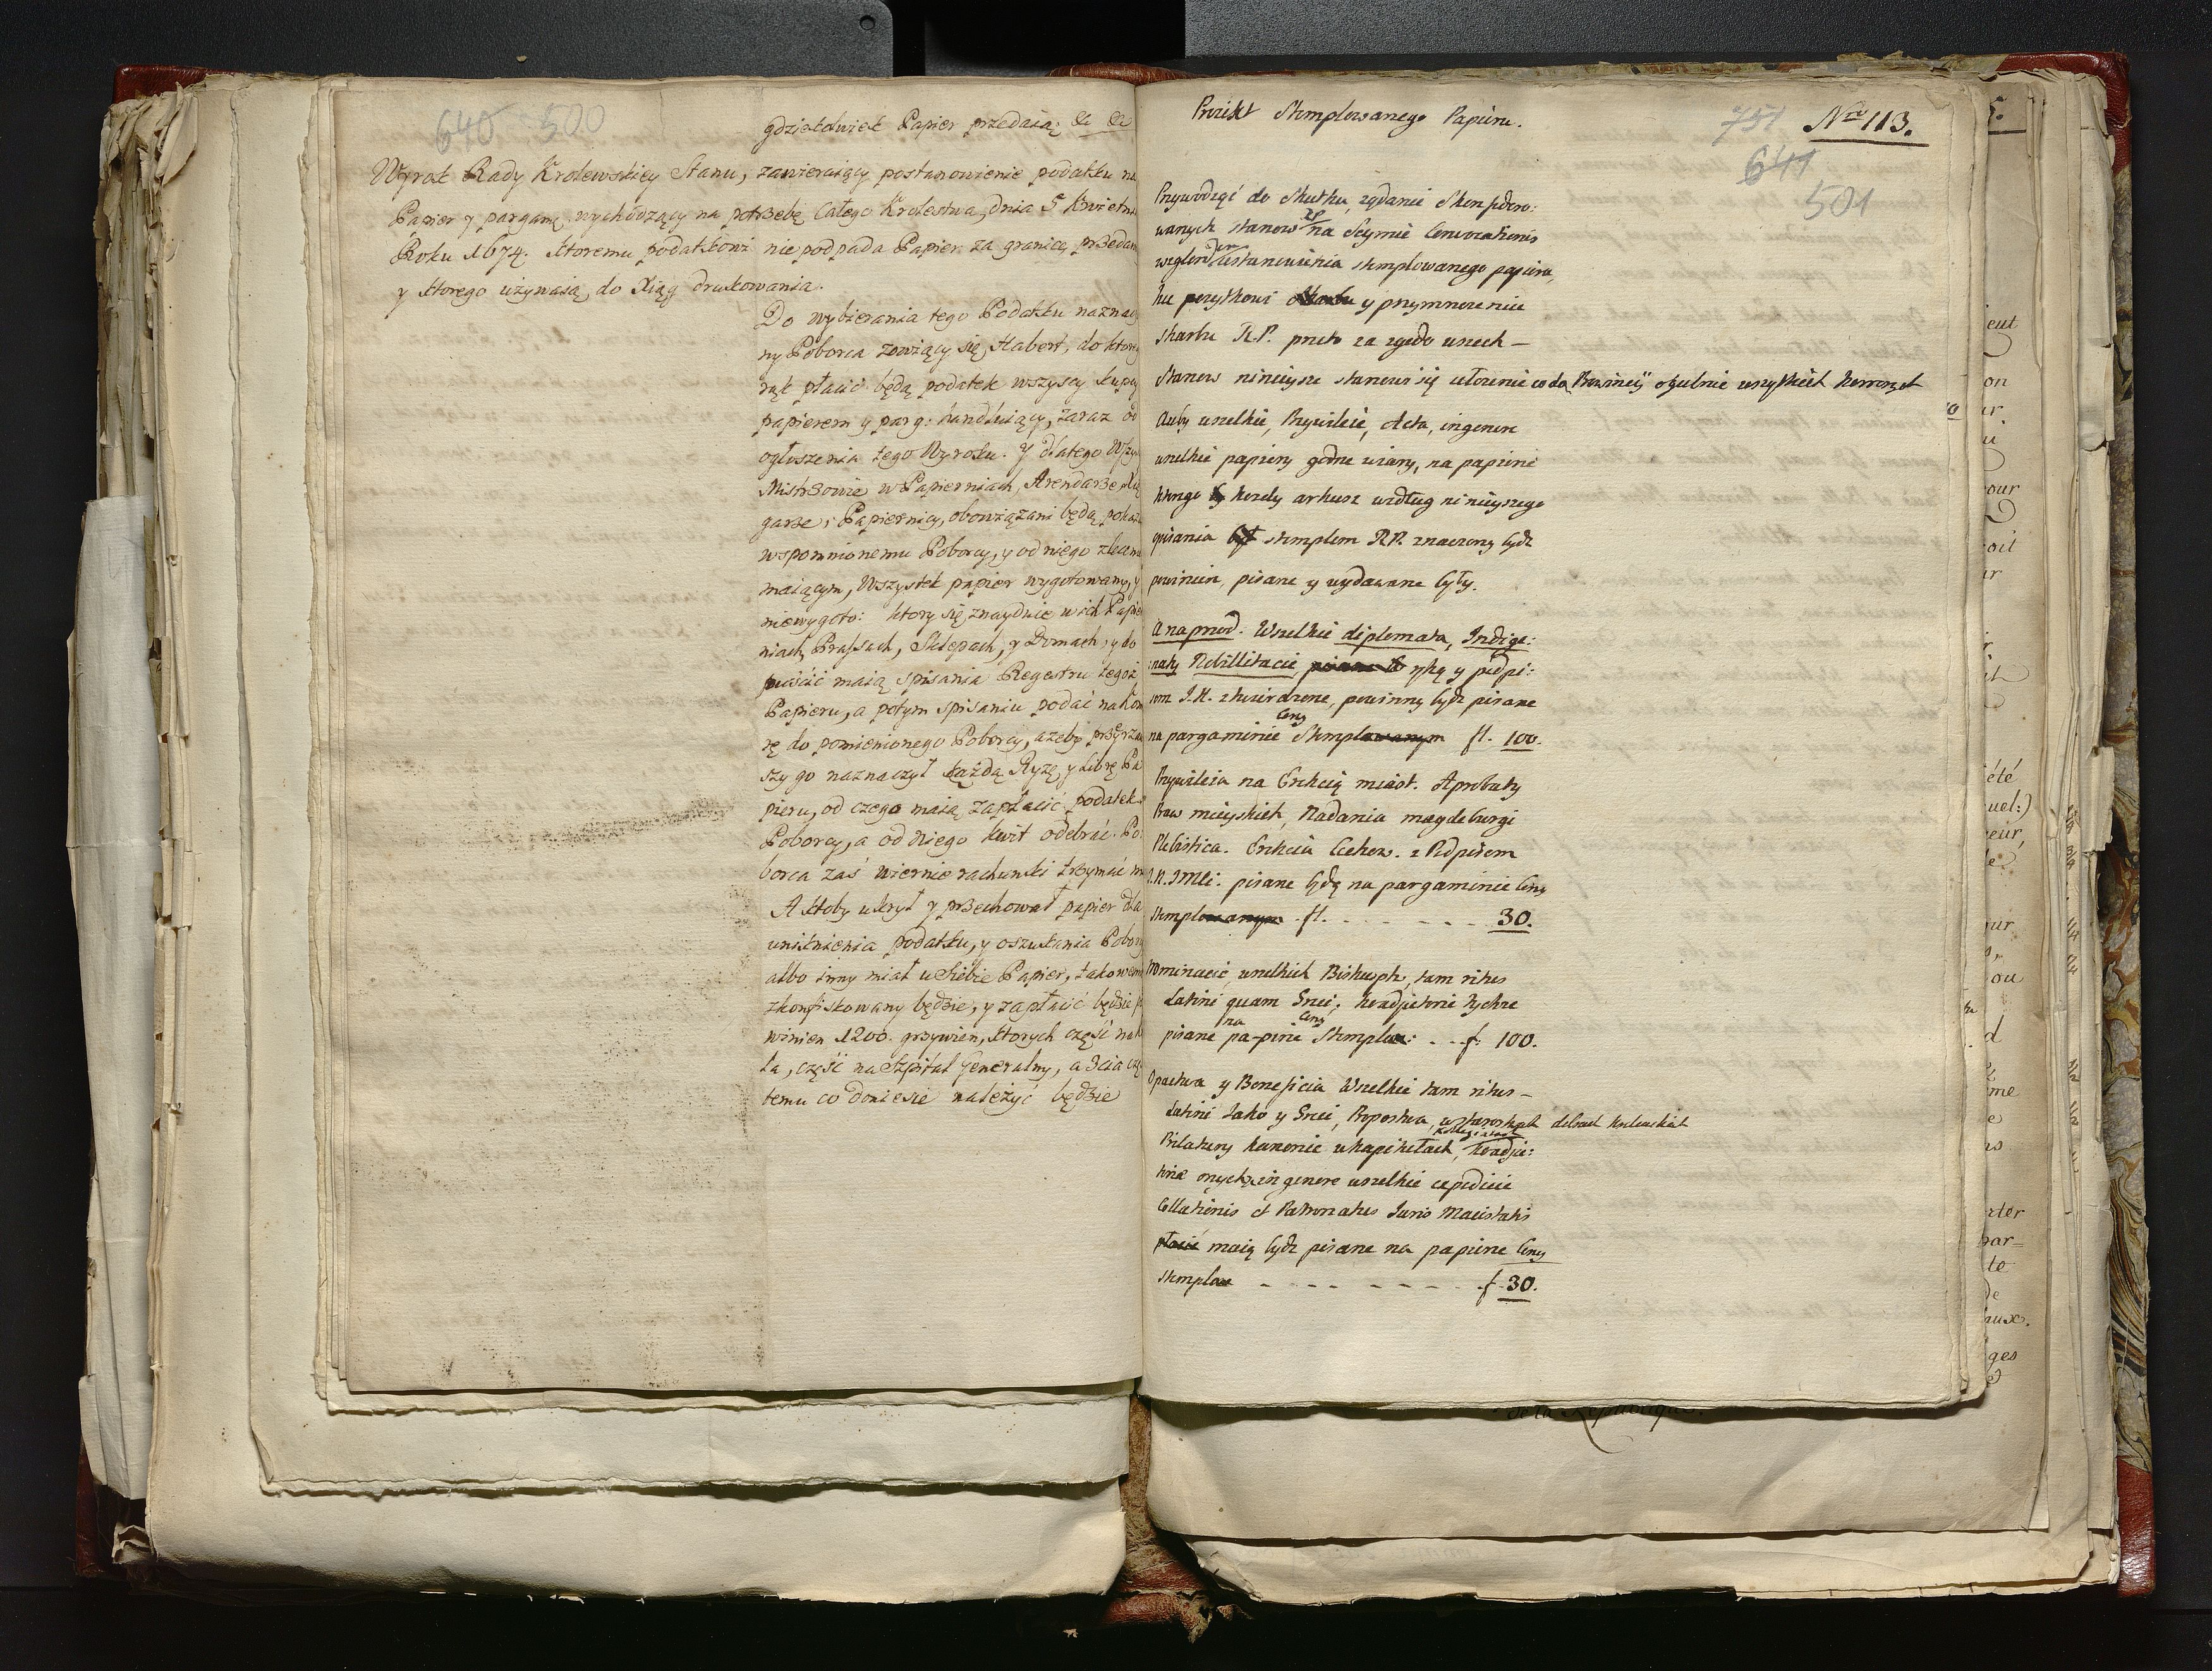 640 500
gdziekolwiek Papier przedaią; &c &c
Wyrok Rady Krolewskiey Stanu, zawieraiący postanowienie podatku na
Papier y pargam: wychodzący na potrzebę Całego Krolestwa, dnia 5 Kwietnia
Roku 1674. Ktoremu podatkowi nie podpada Papier za granicę przedany
y ktorego używaią do Xiąg drukowania.
Do wybierania tego Podatku naznaczo
ny Poborca zowiący się Habert, do ktorego
rąk płacić będą podatek wszyscy kupcy
papierem y parg: handluiący, zaraz od
ogłoszenia tego Wyroku. Y dlatego Wszyscy
Mistrzowie w Papierniach, Arendarze, Xię
garze, i Papiernicy, obowiązani będą pokaz
wspomnionemu Poborcy, y od niego zlecenie
maiącym, Wszystek papier wygotowany, y
niewygoto: ktory się znayduie w ich Papier
niach, Prassach, Sklepach, y Domach, y do
puścić maią spisania Regestru tegoż
Papieru, a potym spisaniu podać na kom
rę do pomienionego Poborcy, ażeby przeyrza
szy go naznaczył każdą Ryzę, y Librę Pa
pieru, od czego maią zapłacić podatek
Poborcy, a od niego kwit odebrać. Po:
borca zaś wiernie rachunki trzymać ma
A ktoby ukrył y przechował papier dla
uniknienia podatku, y oszukania Poborcy
albo inny miał u Siebie Papier, takowemu
zkonfiskowany będzie, y zapłacić będzie po
winien 1200. grzywien, ktorych część na
ta, część na Szpital Generalny, a 3cia czę
temu co doniesie należyć będzie
Proiekt Stemplowanego Papieru.
751 Nro 113.
641
501
Przywodząć do Skutku, żądanie Skonfdero:
wanych stanow RP na Seymie Convocationis
względem ustanowienia stemplowanego papieru,
ku pożytkowi Skarbu y przymnożeniu
skarbu R.P. przeto za zgodą wszech –
Stanow ninieysze stanowi się ułożenie co do Prowincÿ ogulnie wszystkich koronnych
Aeby wszelkie, Przywileie, Acta, in genere
wszelkie papiery godne wiary, na papierze
ktorego by kozdy arkusz według ninieyszego
opisania był stemplem RP. znaczony bydz
powinien, pisane y wydawane były.
A naprzod. Wszelkie diplomata, Indige:
naty Nobillitacie, pisane ręką y podpi:
sem J.K. ztwierdzone, powinny bydz pisane
na pargaminie Ceny Stemplowanym fl. 100.
Przywileia na Erekcią miast. Aprobaty
Praw mieyskich, Nadania magdeburgi
Plebistica. Erekcia Cechow. z Podpisem
J.K.JMCi: pisane będą na pargaminie Ceny
stemplowanym fl. - - - - - 30.
Nominacie, wszelkich Biskupstw, tam ritus
Latini quam Greci, koadjutorie tychze
pisane na pa-pirze Ceny Stemplow: - - f: 100.
Opactwa y Beneficia Wszelkie tam ritus –
Latini Jako y Greci, Propostwa, w starostwach dobrach krolewskich
Prelatury kanonie w kapitułach, kollegiatach koadju:
torie onych, in genere wszelkie expedicie
Collationis et Patronatus Juris Maiestatis
płacić maią bydz pisane na papirze Ceny
stemplow - - - - - - - f. 30.